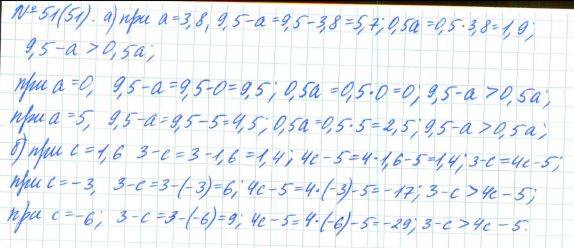 № 51(51). а) при a = 3,8, 9,5-a = 9,5-3,8 = 5,7; 0,5a = 0,5·3,8 = 1,9;
9,5-a > 0,5a;
при a = 0, 9,5-a = 9,5-0 = 9,5; 0,5a = 0,5·0 = 0; 9,5-a > 0,5a;
при a = 5, 9,5-a = 9,5-5 = 4,5; 0,5a = 0,5·5 = 2,5; 9,5-a > 0,5a;
б) при c = 1,6 3-c = 3-1,6 = 1,4; 4c-5 = 4·1,6-5 = 1,4; 3-c = 4c-5;
при c = -3, 3-c = 3-(-3) = 6; 4c-5 = 4·(-3)-5 = -17; 3-c > 4c-5;
при c = -6; 3-c = 3-(-6) = 9; 4c-5 = 4·(-6)-5 = -29; 3-c > 4c-5.